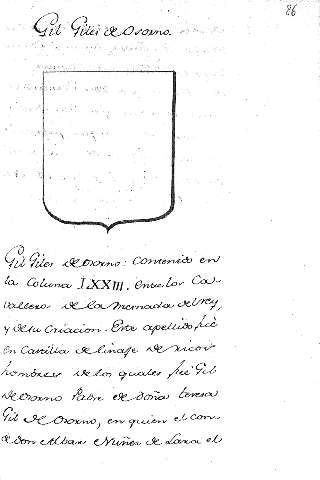 86
Gil Gilez de Osorno.
Gil Gilez de Osorno: Contenido en
la Coluna LXXIII, entre los Ca-
valleros de la mesnada del rey,
y de su Criacion. Este apellido fué
en Castilla de linaje de ricos
hombres de los quales fué Gil
de Osorno Padre de Doña teresa
Gil de Osorno, en quien el Con-
de don Albar Nuñez de Lara el